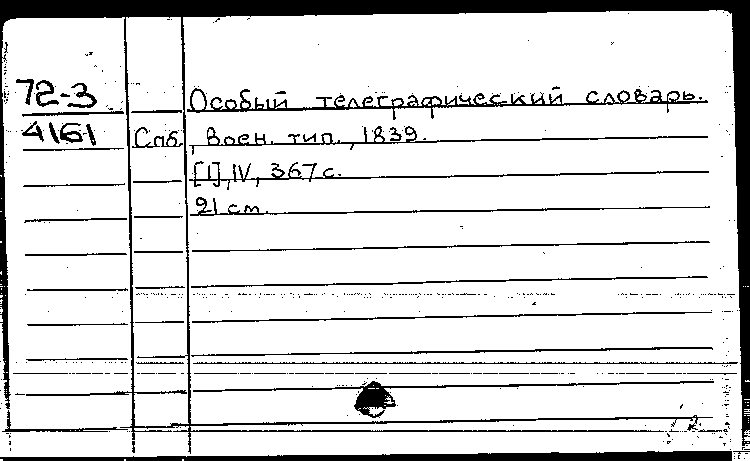 72-3
Особый телеграфический словарь.
4161
Спб., Воен. тип., 1839.
[1], IV, 367 с.
21 см.